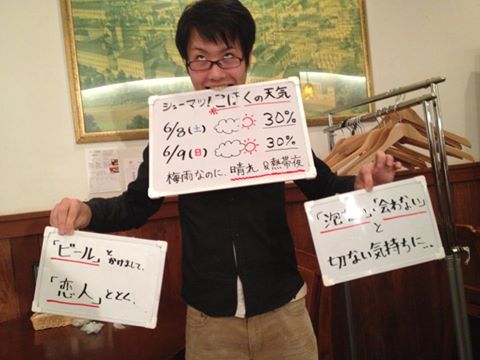 シューマツ!こはくの天気
6/8(土) 30%
6/9(日) 30%
梅雨なのに、晴れ &熱帯夜
「ビール」と
かけまして、
「恋人」ととく。
「泡ない」「会わない」
と
切ない気持ちに…